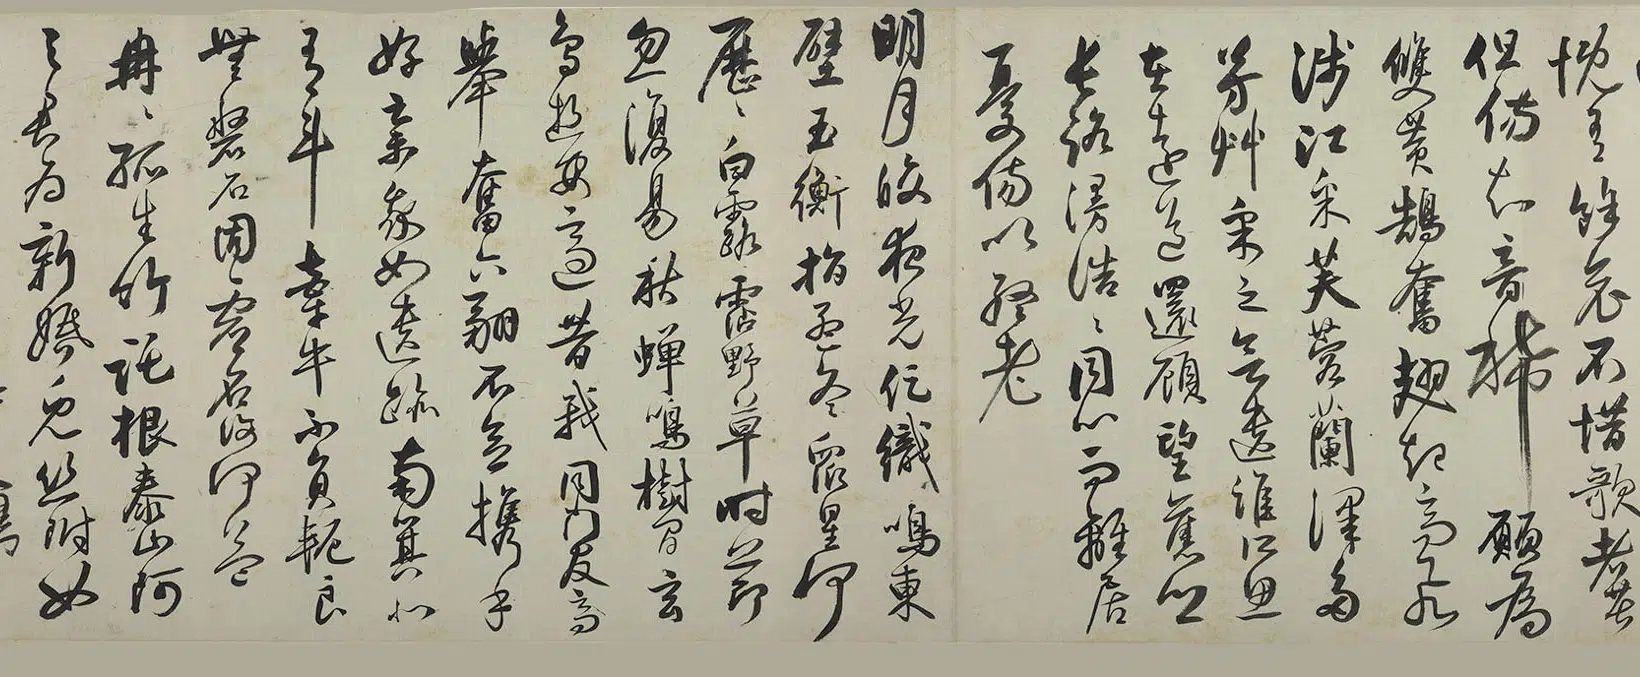 慨有餘哀不惜歌者苦
但傷知音稀願為
雙黃鵠奮翅起高飛
涉江采芙蓉蘭澤多
芳艸采之欲遺誰所思
在遠道還顧望舊鄉
長路漫浩〻同心而離居
憂傷以終老
明月皎夜光促織鳴東
壁玉衡指孟冬衆星何
歷〻白露霑野草時節
忽復易秋蟬鳴樹間玄
鳥逝安適昔我同門友高
舉奮六翮不念攜手
好棄我如遺跡南箕北
有斗牽牛不負軛良
無磐石固虛名復何益
冉〻孤生竹託根泰山阿
與君為新婚兔絲附女